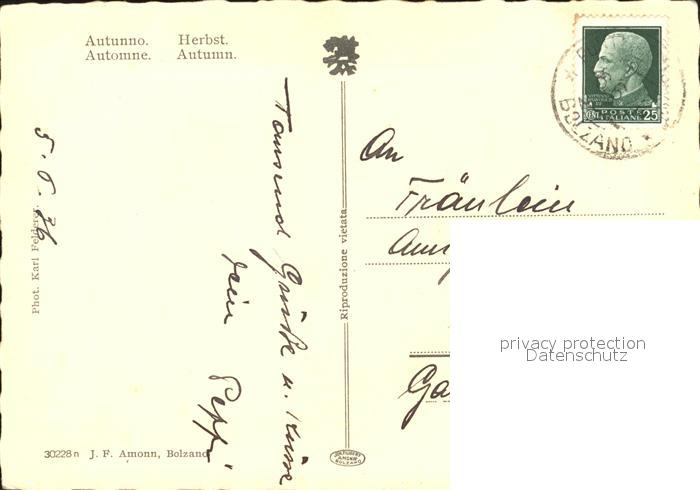 Autunno. Herbst.
Automne. Autumn.
5. 6. 36
Phot. Karl Felderer
Tausend Grüße u. Küsse
dein Peppi
30228 n J. F. Amonn, Bolzano
Riproduzione vietata
AMONN
BOLZANO
CENT. POSTE ITALIANE 25
BOLZANO
An
Fräulein
privacy protection
Datenschutz